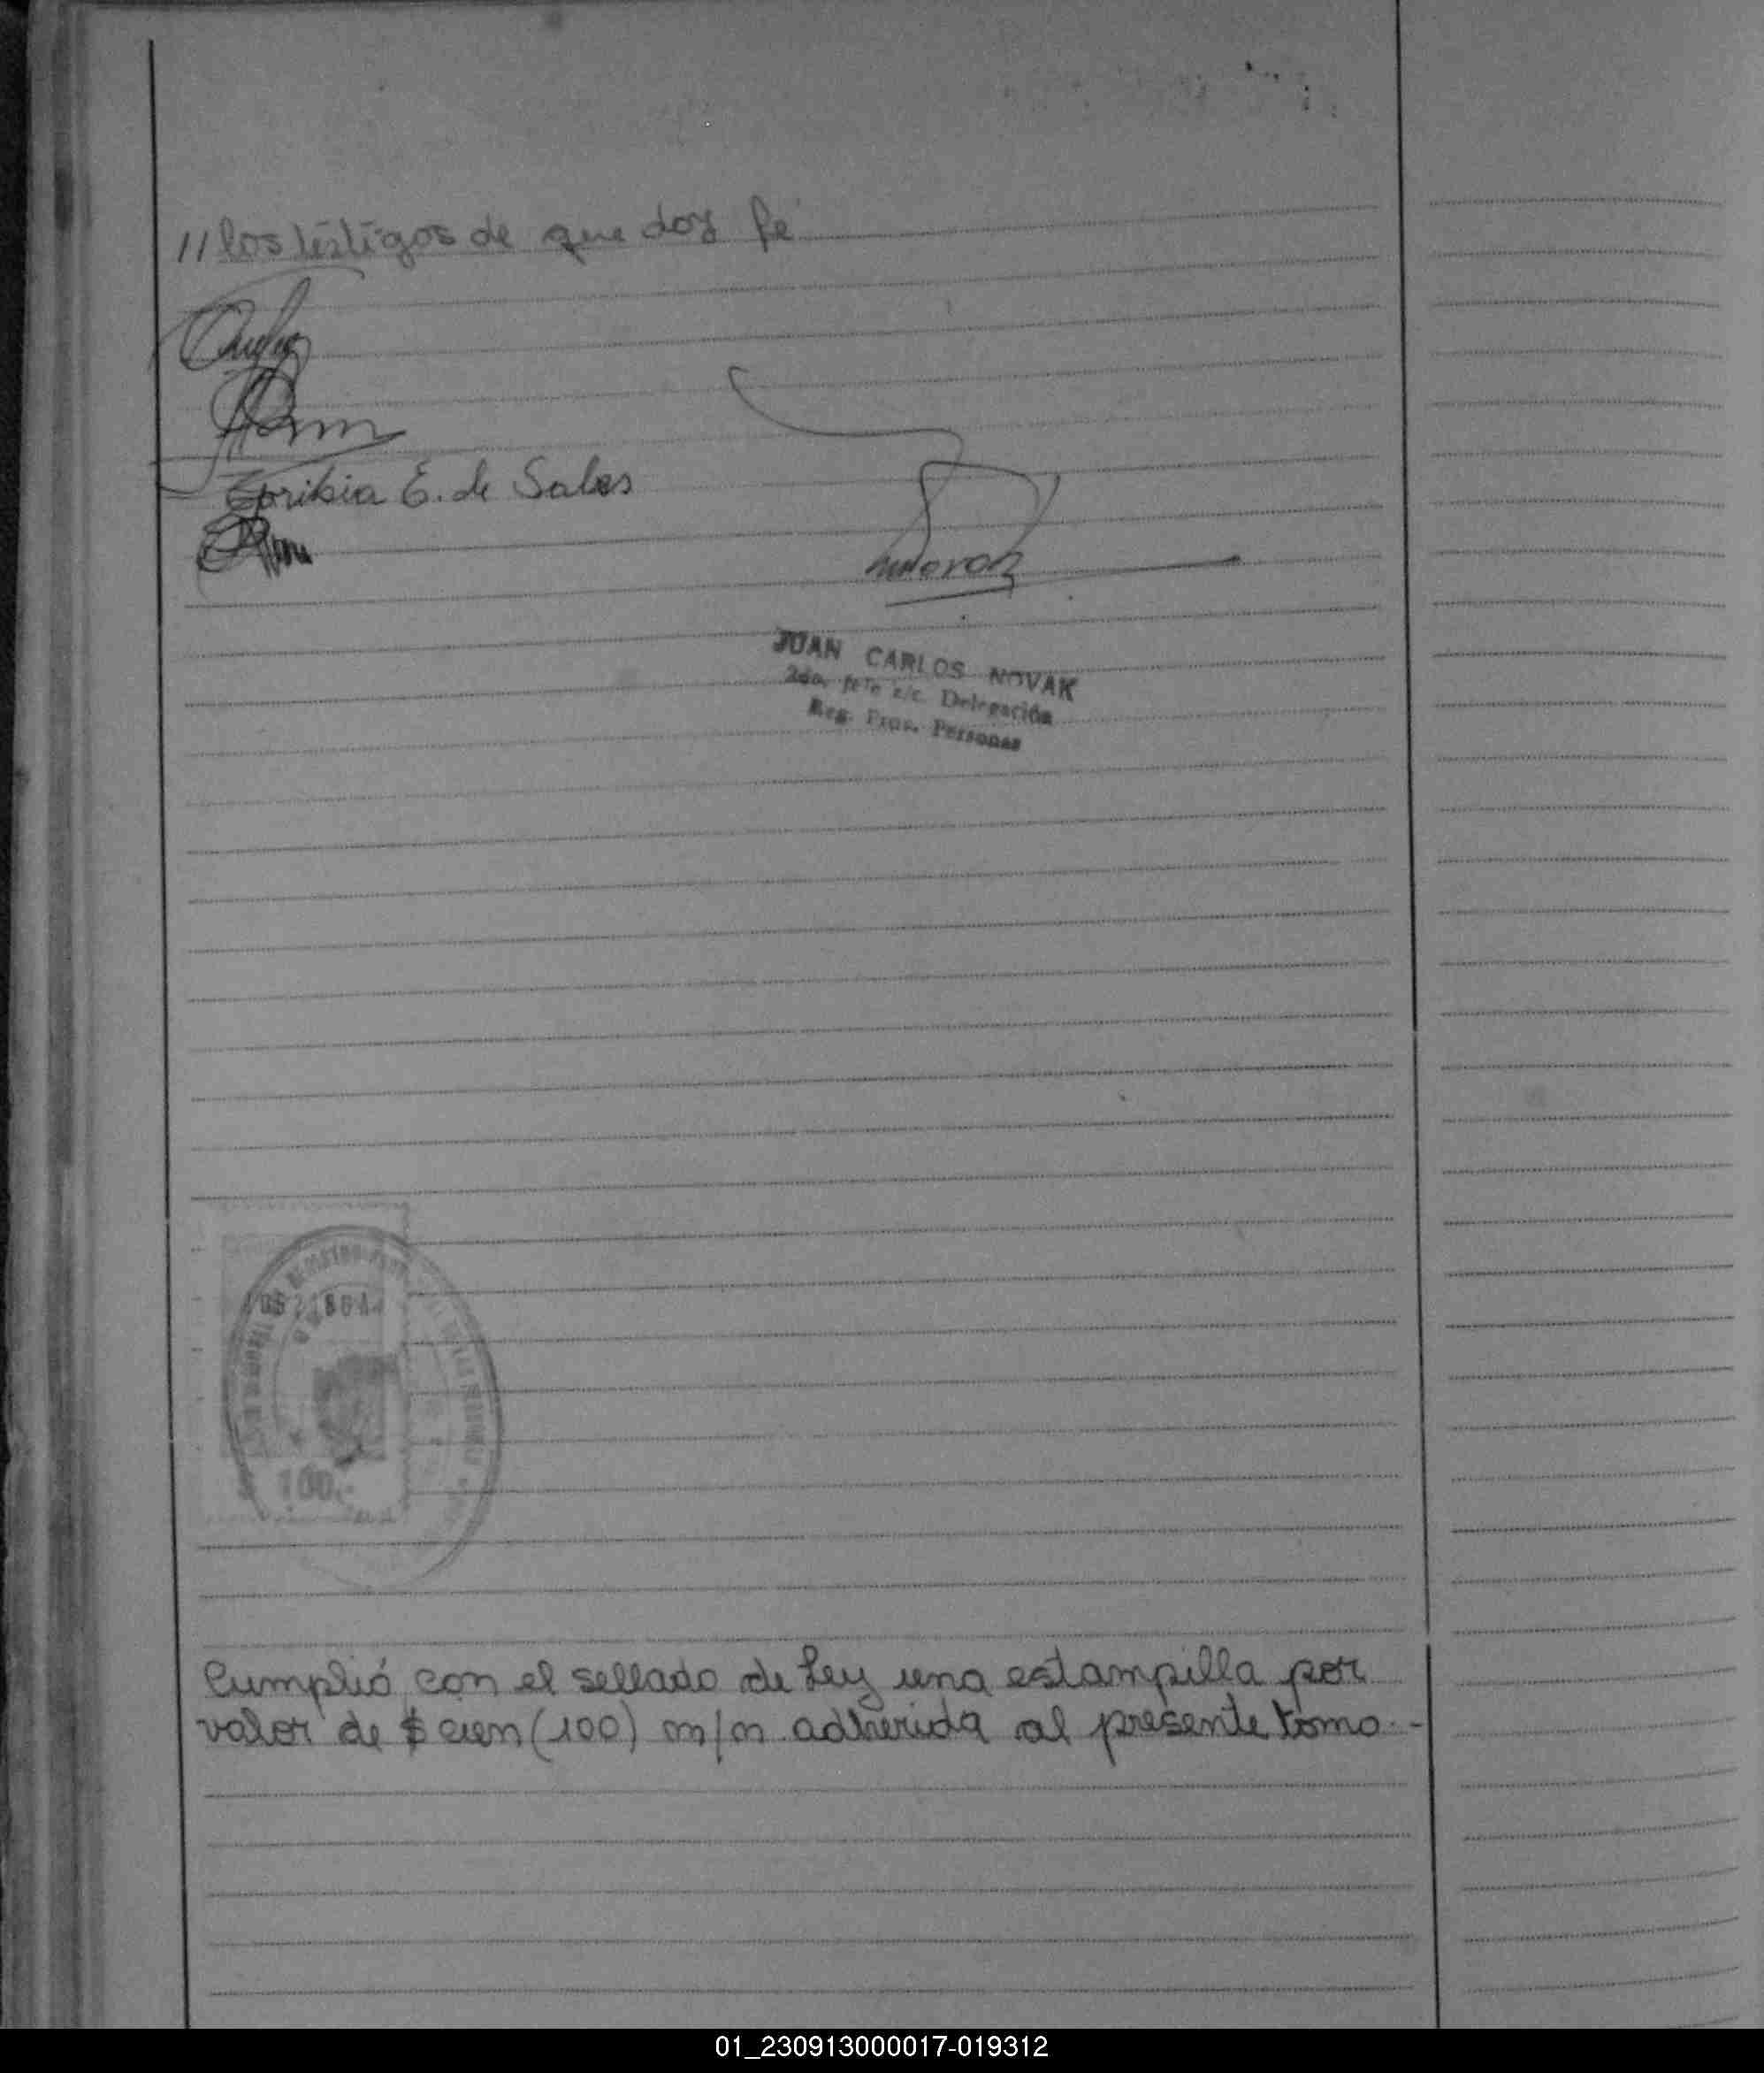 // los testigos de que doy fe
E. de Salas
JUAN CARLOS NOVAK
2do. Jefe z/c. Delegación
Reg. Prov. Personas
100.-
Cumplió con el sellado de Ley una estampilla por
valor de $ cien (100) m/n adherida al presente tomo.-
01_230913000017-019312